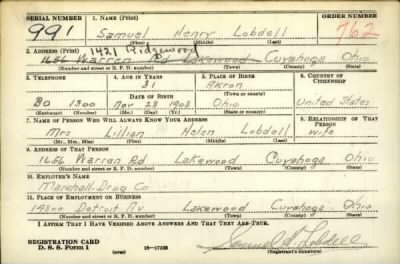 SERIAL NUMBER 1. NAME (Print) ORDER NUMBER
991 Samuel Henry Lobdell 762
(First) (Middle) (Last)
1421 Ridgewood
2. ADDRESS (Print)
1656 Warren Rd Lakewood Cuyahoga Ohio
(Number and street or R. F. D. number) (Town) (County) (State)
3. TELEPHONE 4. AGE IN YEARS 5. PLACE OF BIRTH 6. COUNTRY OF CITIZENSHIP
31 Akron
DATE OF BIRTH (Town or county)
BO 1300 Nov 28 1908 Ohio United States
(Exchange) (Number) (Mo.) (Day) (Yr.) (State or country)
7. NAME OF PERSON WHO WILL ALWAYS KNOW YOUR ADDRESS 8. RELATIONSHIP OF THAT PERSON
Mrs Lillian Helen Lobdell wife
(Mr., Mrs., Miss) (First) (Middle) (Last)
9. ADDRESS OF THAT PERSON
1656 Warran Rd Lakewood Cuyahoga Ohio
(Number and street or R. F. D. number) (Town) (County) (State)
10. EMPLOYER'S NAME
Marshall Drug Co
11. PLACE OF EMPLOYMENT OR BUSINESS
Detroit Av Lakewood Cuyahoga Ohio
(Number and street or R. F. D. number) (Town) (County) (State)
I AFFIRM THAT I HAVE VERIFIED ABOVE ANSWERS AND THAT THEY ARE TRUE.
REGISTRATION CARD
D. S. S. Form 1 (over) 16—17105 Samuel H. Lobdell
(Registrant's signature)